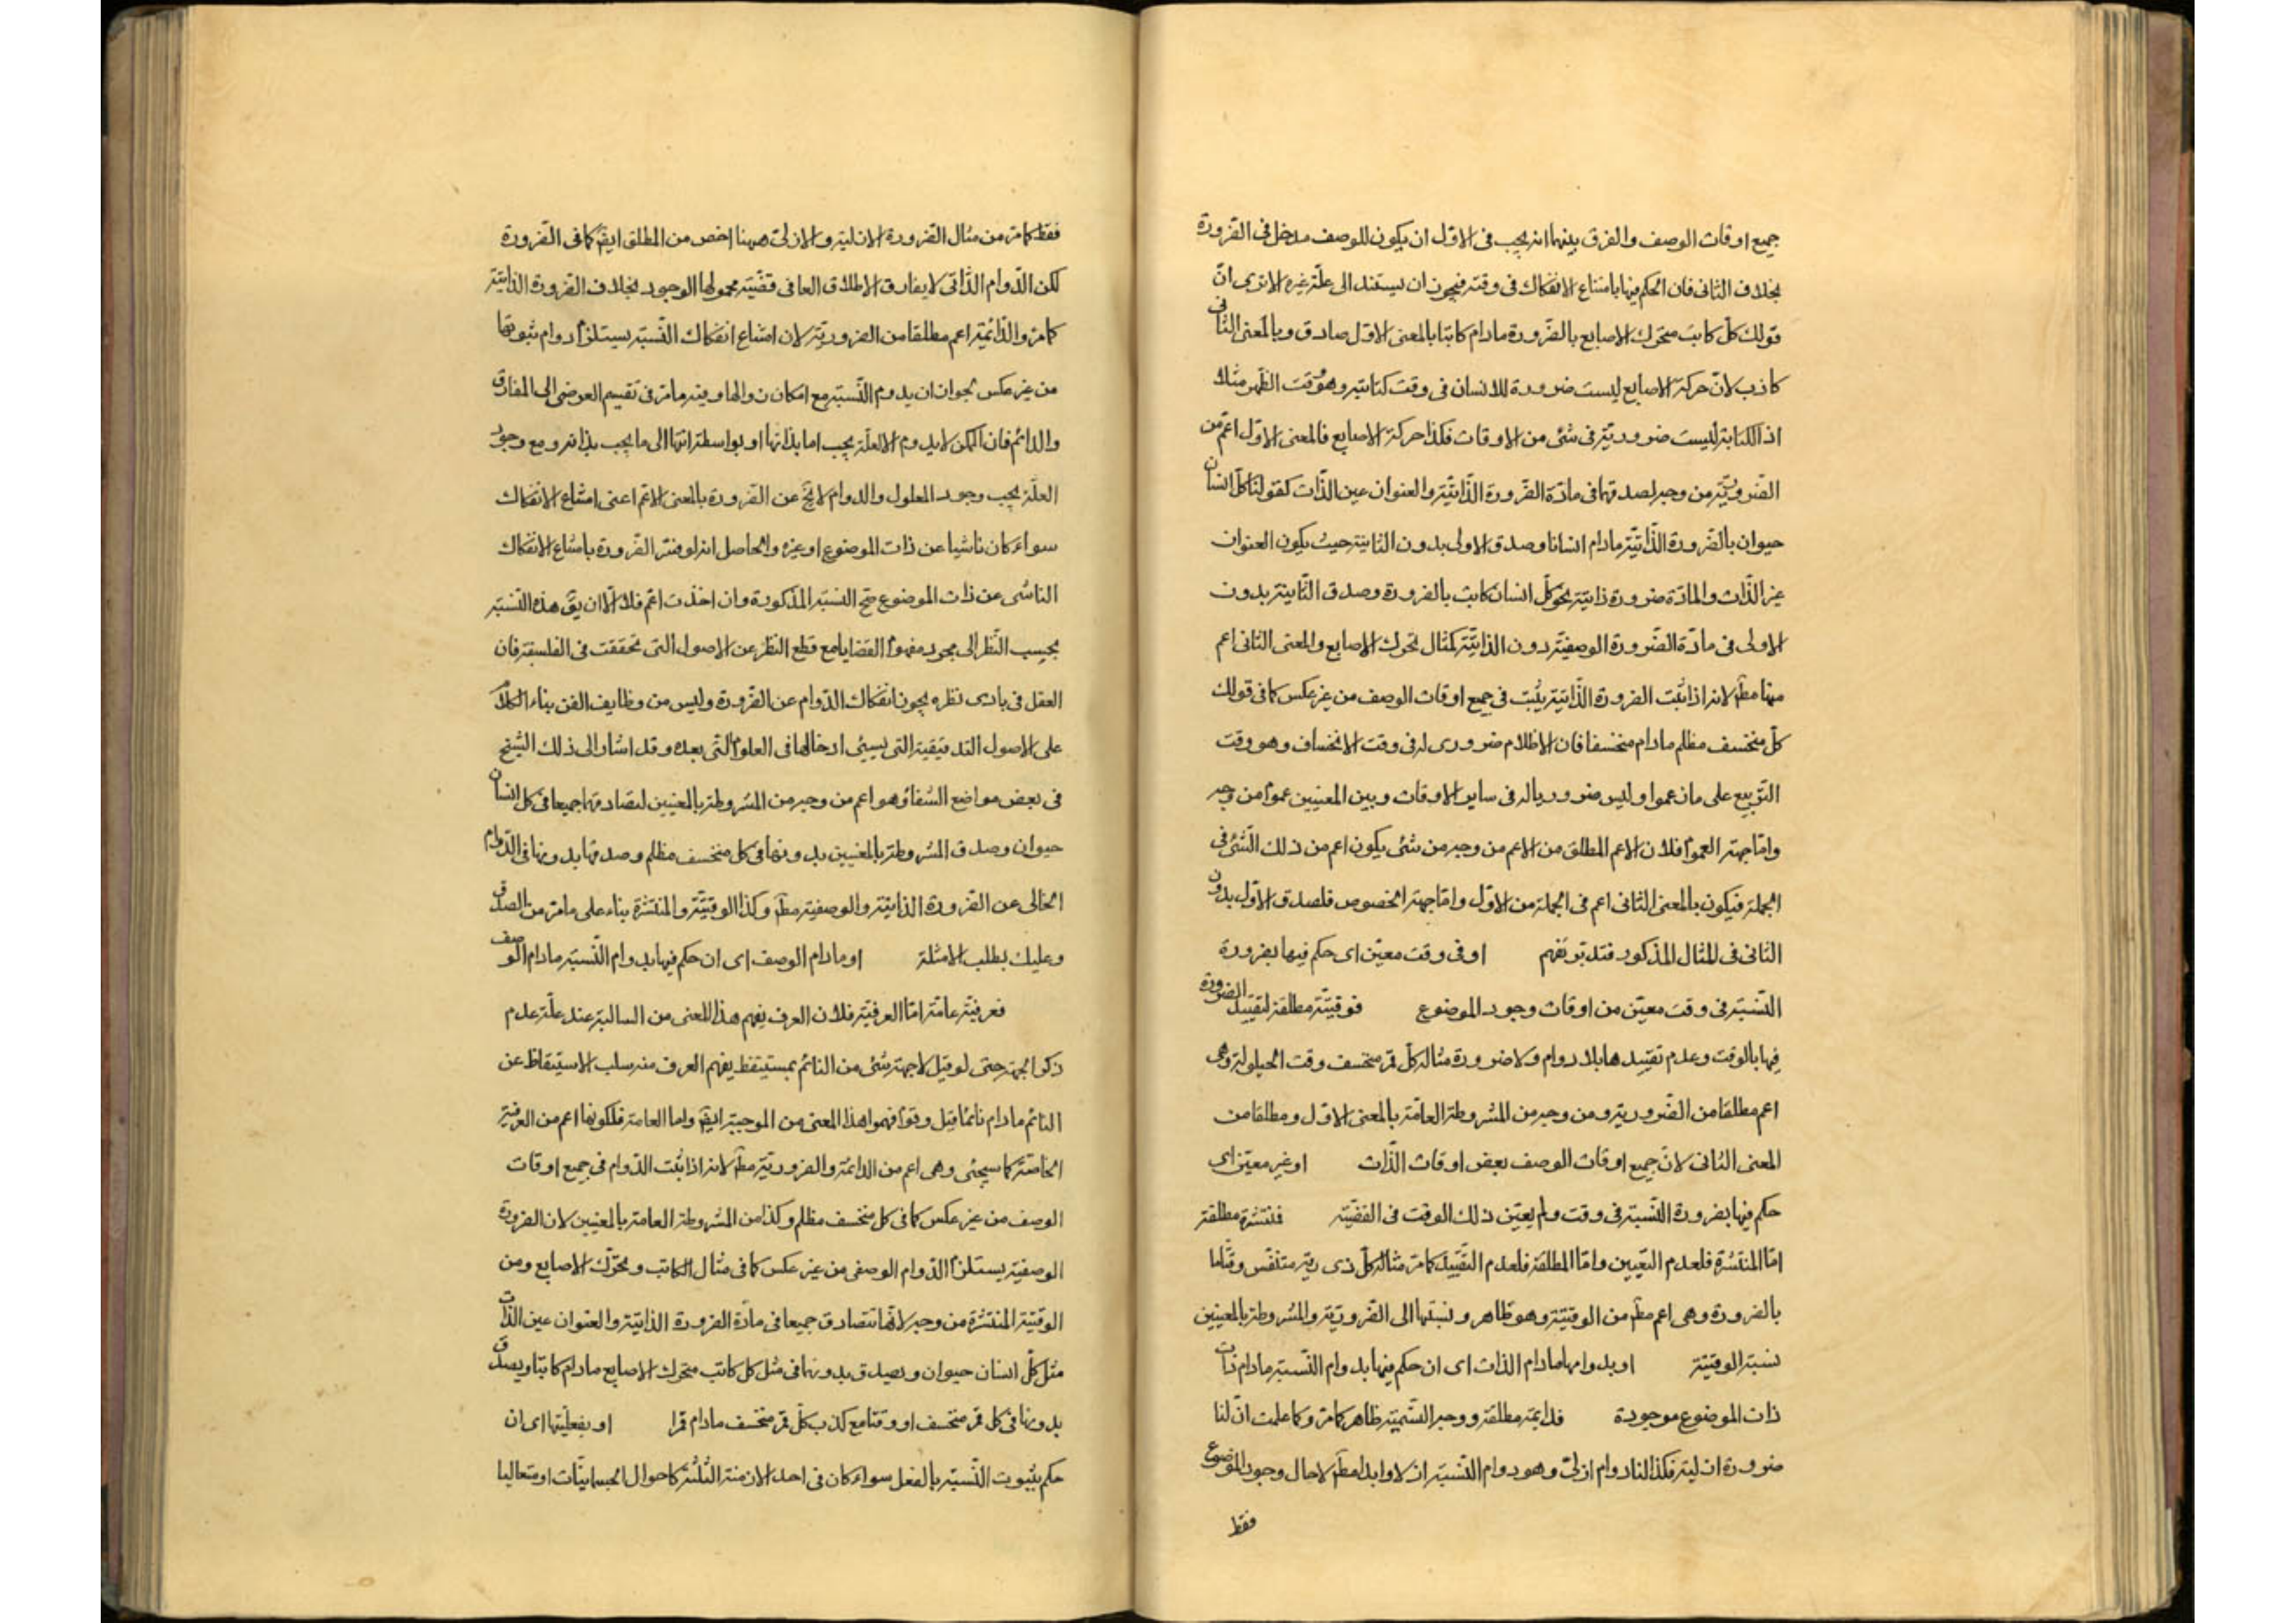 جميع اوقات الوصف والفرق بينهما انه يجب فى الاوّل ان يكون للوصف مدخل فى الضّرورة
بخلاف الثانى فان الحكم فيها بامتناع الانفكاك فى وقته فيجوز ان يستند الى علّة غيره الا ترى انّ
قولك كلّ كاتب متحرك الاصابع بالضّرورة مادام كاتبا بالمعنى الاوّل صادق وبالمعنى الثانى
كاذب لانّ حركة الاصابع ليست ضرورة للانسان فى وقت كتابته وهو وقت الظّهر مثلا
اذ الكتابة ليست ضروريّة فى شئ من الاوقات فكذا حركة الاصابع فالمعنى الاوّل اعمّ من
الضّروريّة من وجه لصدقهما فى مادّة الضّرورة الذّاتيّة والعنوان عين الذّات كقولنا كلّ انسان
حيوان بالضّرورة الذّاتيّة مادام انسانا وصدق الاولى بدون الثانية حيث يكون العنوان
غير الذّات والمادّة ضرورة ذاتيّة نحو كلّ انسان كاتب بالضرورة وصدق الثّانية بدون
الاولى فى مادّة الضّرورة الوصفيّة دون الذاتيّة كمثال تحرك الاصابع والمعنى الثانى اعم
منها مطّ لانه اذا ثبت الضرورة الذّاتية يثبت فى جميع اوقات الوصف من غير عكس كما فى قولك
كلّ منخسف مظلم مادام منخسفا فان الاظلام ضرورى له فى وقت الانخساف وهو وقت
التّربيع على ما زعموا وليس ضروريا له فى ساير الاوقات وبين المعنيين عموم من وجه
وامّا جهة العموم فلان الاعم المطلق من الاعم من وجه من شئ يكون اعم من ذلك الشّئ فى
الجملة فيكون بالمعنى الثانى اعم فى الجملة من الاوّل وامّا جهة الخصوص فلصدق الاوّل بدون
الثانى فى المثال المذكور فتدبّر تفهم او فى وقت معيّن اى حكم فيها بضرورة
النّسبة فى وقت معيّن من اوقات وجود الموضوع فوقتيّة مطلقة لتقييد الضرورة
فيها بالوقت وعدم تقييدها بلا دوام ولا ضرورة مثاله كلّ قمر منخسف وقت الحيلولة وهى
اعم مطلقا من الضّرورية ومن وجه من المشروطة العامّة بالمعنى الاوّل ومطلقا من
المعنى الثانى لانّ جميع اوقات الوصف بعض اوقات الذّات او غير معيّن اى
حكم فيها بضرورة النّسبة فى وقت ولم يعيّن ذلك الوقت فى القضيّة فمنتشرة مطلقة
امّا المنتشرة فلعدم التعيين وامّا المطلقة فلعدم التّقييد كما مرّ مثاله كلّ ذى رية متنفّس وقتاما
بالضرورة وهى اعم مطّ من الوقتيّة وهو ظاهر ونسبتها الى الضّروريّة والمشروطة بالمعنيين
نسبة الوقتيّة او بدوامها مادام الذات اى ان حكم فيها بدوام النّسبة مادام ذات
ذات الموضوع موجودة فدايمة مطلقة ووجه التّسمية ظاهر كما مرّ وكما علمت انّ لنا
ضرورة ازليّة فكذا لنا دوام ازلىّ وهو دوام النّسبة ازلا وابدا مطّ لا حال وجود الموضوع
فقط
فقط كما مرّ من مثال الضرورة الازلية والازلىّ ههنا اخص من المطلق ايضّ كما فى الضّرورة
لكن الدّوام الذّاتى لا يفارق الاطلاق العا فى قضيّة محمولها الوجود بخلاف الضرورة الذاتيّة
كما مرّ والدّائمة اعم مطلقا من الضروريّة لان امتناع انفكاك النّسبة يستلزم دوام ثبوتها
من غير عكس لجواز ان يدوم النّسبة مع امكان زوالها وفيه مامرّ فى تقسيم العرضى الى المفارق
والدائم فان الممكن لا يدوم الا لعلّة يجب اما بذاتها او بواسطة انتهائها الى ما يجب بذاته ومع وجود
العلّة يجب وجود المعلول والدوام لا يخّ عن الضّرورة بالمعنى الاعّم اعنى امتناع الانفكاك
سواء كان ناشيا عن ذات الموضوع او غيره والحاصل انه لو فسّر الضّرورة بامتناع الانفكاك
الناشى عن ذات الموضوع صّح النسبة المذكورة وان اخذت اعّم فلا الّا ان يقّ هذه النّسبة
بحسب النّظر الى مجرد مفهوم القضايا مع قطع النظر عن الاصول التى تحققت فى الفلسفة فان
العقل فى بادى نظره يجوز انفكاك الدّوام عن الضّرورة وليس من وظايف الفن بناء الكلام
على الاصول التدقيقية التى يسيئ ادخالها فى العلوم الّتى بعده وقد اشار الى ذلك الشّيخ
فى بعض مواضع الشفاء وهو اعم من وجه من المشروطة بالمعنيين لتصادقها جميعا فى كل انسان
حيوان وصدق المشروطة بالمعنيين بدونها فى كل منخسف مظلم وصدقها بدونها فى الدّوام
الخالى عن الضرورة الذاتية والوصفية مطّ وكذا الوقتيّة والمنتشرة بناء على ما مرّ من الصدق
وعليك بطلب الامثلة او مادام الوصف اى ان حكم فيها بدوام النّسبة مادام الوصف
فعرفيّة عامّة امّا العرفيّة فلان العرف يفهم هذا المعنى من السالبة عند علّة عدم
ذكر الجهة حتى لو قيل لا جهة شئ من النائم بمستيقظ يفهم العرف منه سلب الاستيقاظ عن
النائم مادام نائما قيل وقوم فهموا هذا المعنى من الموجبة ايضّ واما العامة فلكونها اعم من العرفية
الخاصّة كما سيجئ وهى اعم من الدائمة والضروريّة مطّ لانه اذا ثبت الدّوام فى جميع اوقات
الوصف من غير عكس كما فى كل منخسف مظلم وكذا من المشروطة العامة بالمعنيين لان الضرورة
الوصفية يستلزم الدّوام الوصفى من غير عكس كما فى مثال الكاتب وتحرّك الاصابع ومن
الوقتيّة المنتشرة من وجه لانّها تتصادق جميعا فى مادّة الضرورة الذاتيّة والعنوان عين الذّات
مثل كلّ انسان حيوان ويصدق بدونها فى مثل كل كاتب متحرك الاصابع مادام كاتبا ويصدق
بدونها فى كل قمر منخسف او وقتا مع كذب كلّ قمر منخسف مادام قمرا او بفعليّتها اى ان
حكم بثبوت النّسبة بالفعل سواء كان فى احد الازمنة الثلثة كاحوال الجسمانيّات او متعاليا